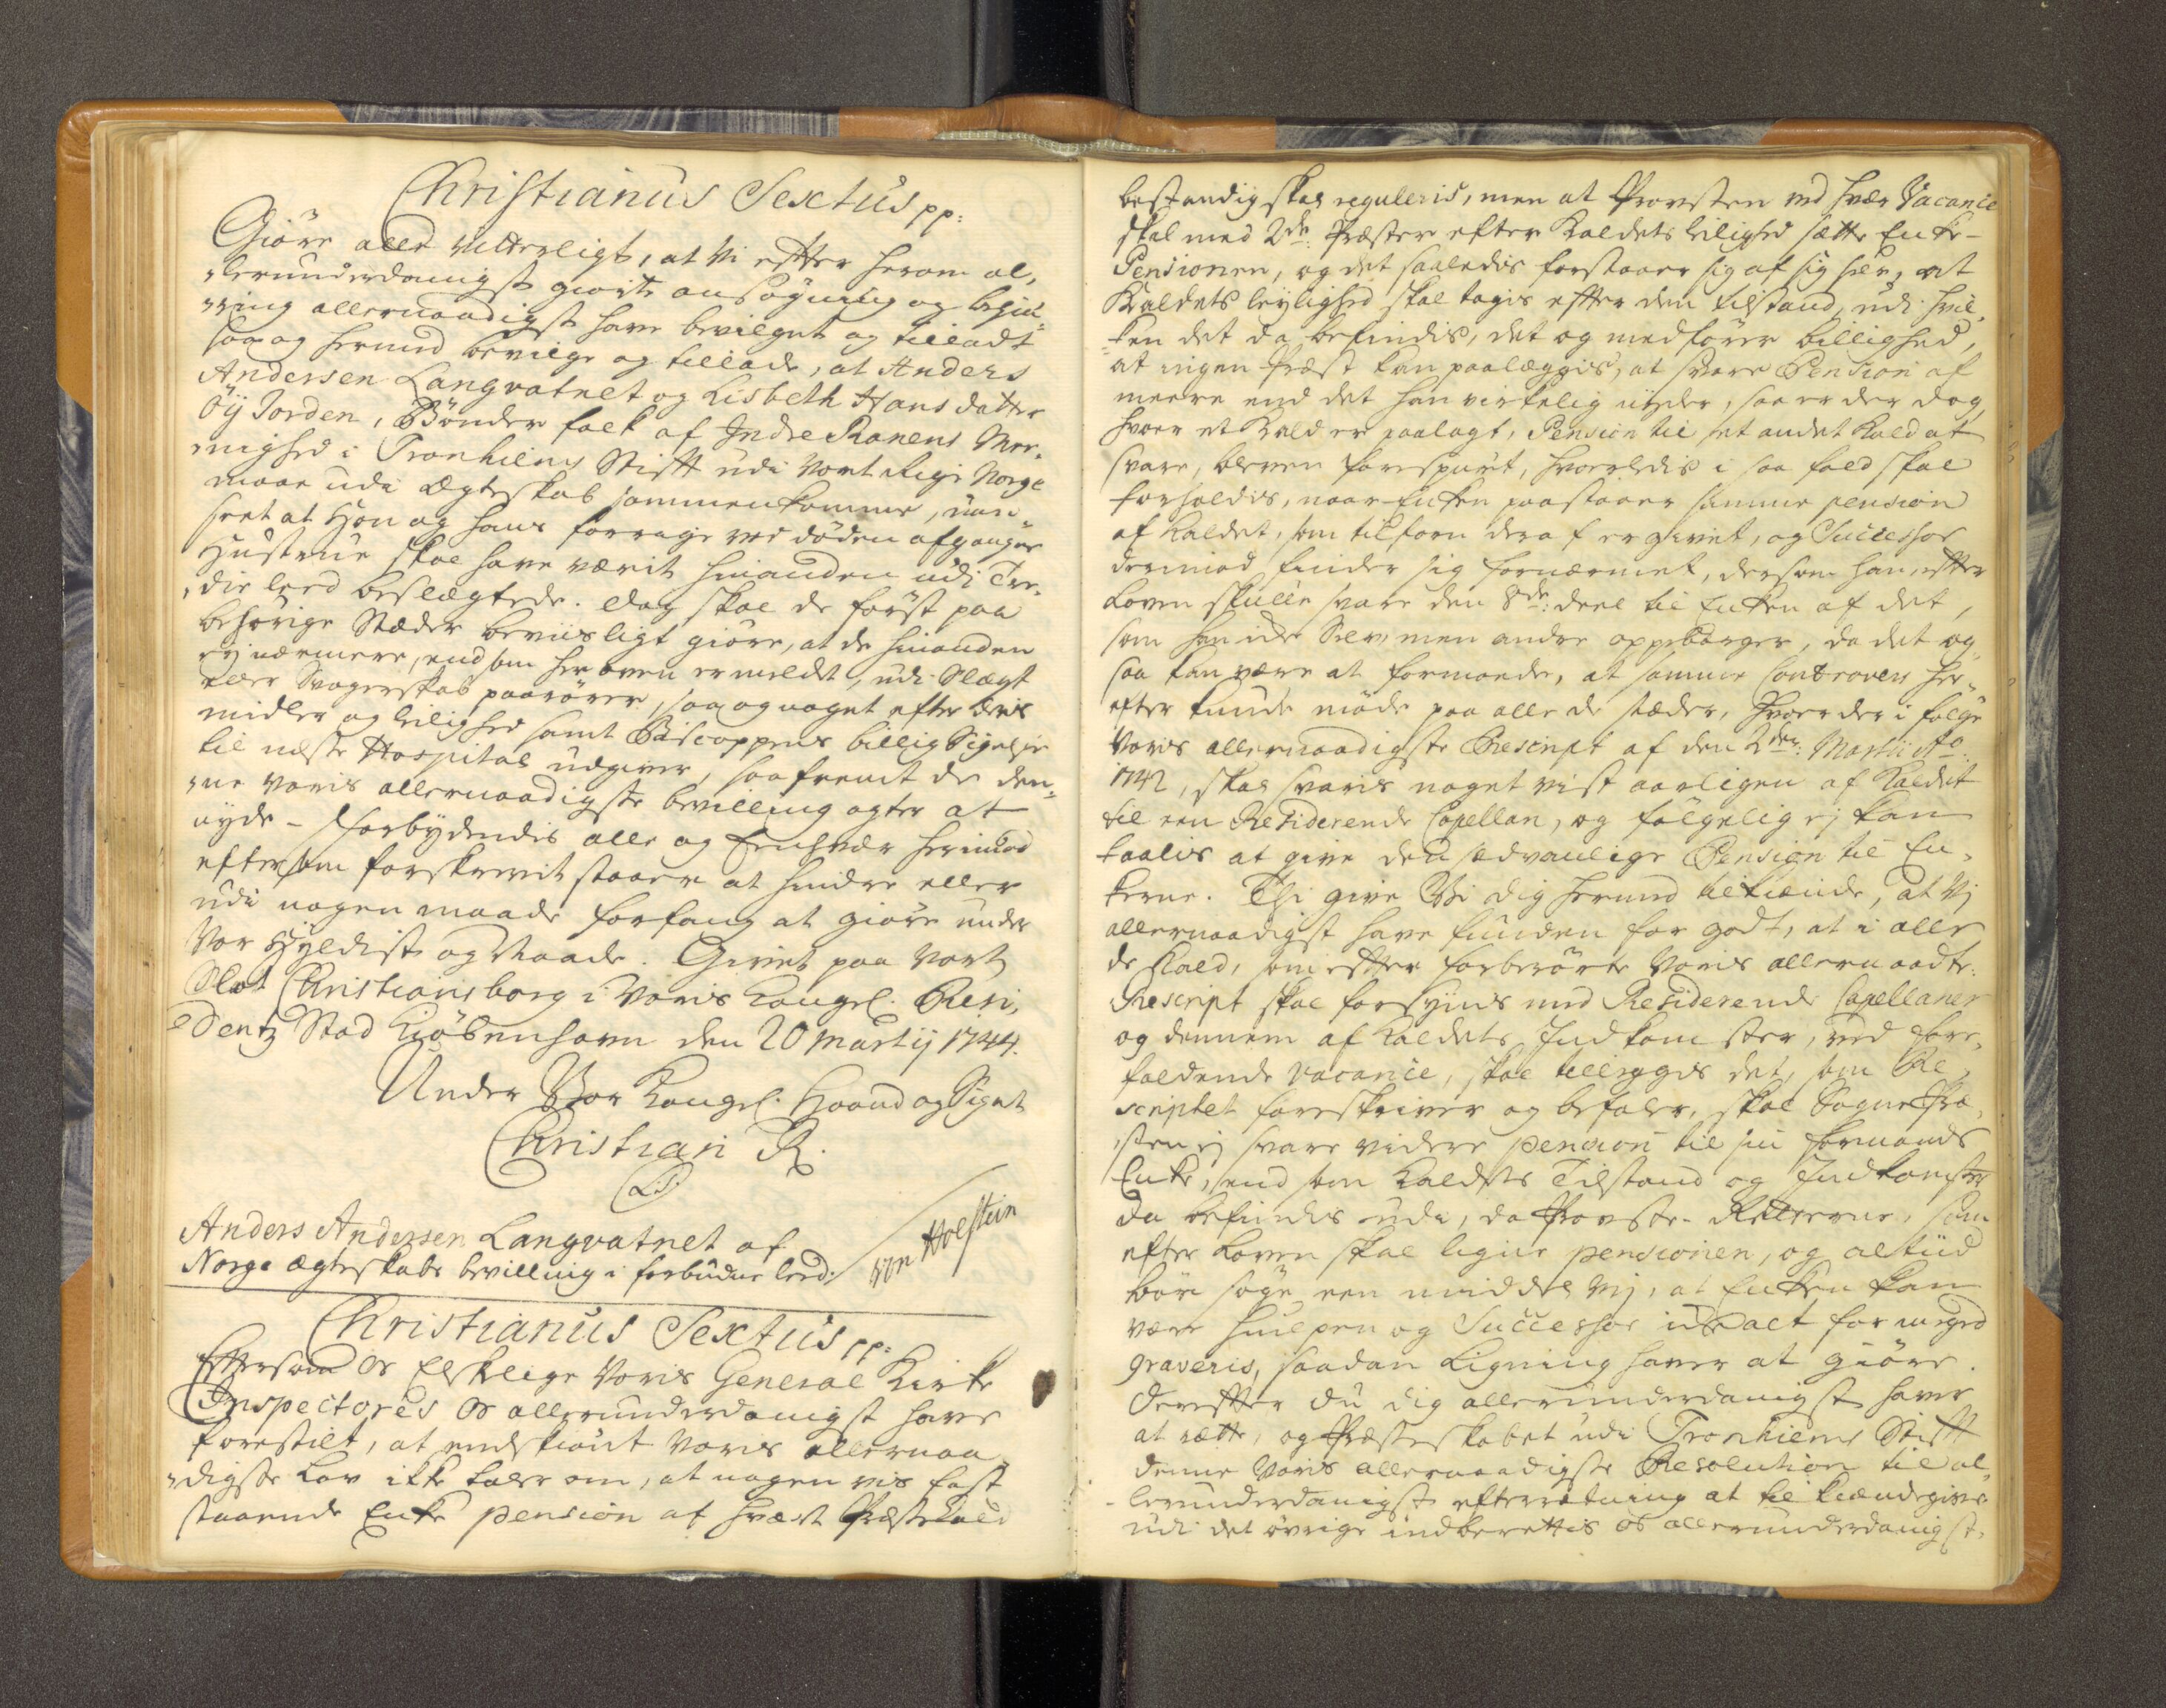 Christianus Sextus pp:
Giöre alle vitterligt, at Vi efter herom al,
lerunderdanigst giorte ansøgning og begiæ-
ring allernaadigst have bevilget og tilladt
saa og hermed bevilge og tillade, at Anders
Andersen Langvatnet og Lisbeth Hans datter
Öÿ Jorden, Bönder folk af Indre Ranens Me-
nighed i Tronhiems Stift udi Vort Rige Norge
maae udi Ægteskab sammenkomme, uan
seet at Hun og hans forrige ved döden afgangne
Hustrue skal have værit hinanden udi Tre,
die leed beslægtede. Dog skal de först paa
behörige Stæder beviisligt giöre, at de hinanden
ej nærmere, end som her oven er meldt, udi Slægt
eller Svogerskab paarörer, saa og noget efter deris
midler og leilighed samt Biscoppens billig Sigelse
til næste Hospital udgiver, saafremt de den-
ne Voris allernaadigste bevilling agter at
nyde - Forbydendis alle og Enhver herimod
eftersom forskrevit staaer at hindre eller
udi nogen maade forfang at giöre under
Vor Hyldist og Naade. Givet paa Vort
Slot Christiansborg i Voris Kongel. Resi,
dentz Stad Kiöbenhavn den 20 Martij 1744.
Under Vor Kongel. Haand og Signet
Christian R.
L.S.
Anders Andersen Langvatnet af
Norge ægteskabs bevilling i forbudne leed:/
von Holstein
Christianus Sextus pp:
Eftersom Os Elskelige Voris General Kirke
Inspectores Os allerunderdanigst have
forestilt, at endskiönt Voris allernaa
digste Lov ikke taler om, at nogen vis fast
staaende Enke pension af hvert Præstekald
bestandig skal reguleris, men at Provsten ved hver Vacance
skal med 2de Præster efter Kaldets leilighed sætte Enke-
Pensionen, og det saaledis forstaaer sig af sig selv, at
Kaldets leylighed skal tagis efter den tilstand, udi hvil,
ken det da befindis, det og medförer billighed,
at ingen Præst kan paalæggis, at svare Pension af
meere end det han virkelig nyder, saa er der dog,
hvor et Kald er paalagt, Pension til et andet Kald at
svare, bleven forespurt, hvorledis i saa fald skal
forholdis, naar Enken paastaaer samme pension
af Kaldet, som tilforn deraf er givet, og Successor
derimod finder sig fornærmet, dersom han efter
Loven skulle svare den 8de deel til Enken af det,
som han icke Selv, men andre oppebærger, da det og
saa kan være at formoede, at samme Controvers her,
efter kunde möde paa alle de stæder, hvor der i fölge
Voris allernaadigste Rescript af den 2den Martii Ao
1742, skal svaris noget vist aarligen af Kaldet
til een Residerende Capellan, og fölgelig ej kan
taalis at give den sædvanlige Pension til En,
kerne. Thi give Vi dig hermed tilkiende, at Vj
allernaadigst have funden for godt, at i alle
de Kald, som efter forberörte Voris allernaadte:
Rescript skal forsÿnes med Residerende Capellaner
og dennem af Kaldets Indkomster, ved fore,
faldende vacance, skal tillegges det, som Re,
scriptet foreskriver og befaler, skal SognePræ,
sten ej svare videre pension til sin Formands
Enke, end som Kaldets Tilstand og Indkomster
da befindes udi, da Provste-Retterne, som
efter Loven skal ligne pensionen, og altiid
bör söge een middel vej, at Enken kan
være hiulpen og Successor icke alt for meged
graveris, saadan Ligning haver at giöre.
Derefter du dig allerunderdanigst haver
at rette, og Præsteskabet udi Tronhiems Stift
denne Voris allernaadigste Resolution til al,
lerunderdanigst efterretning at tilkiendegive
udi det övrige indberettis os allerunderdanigst,